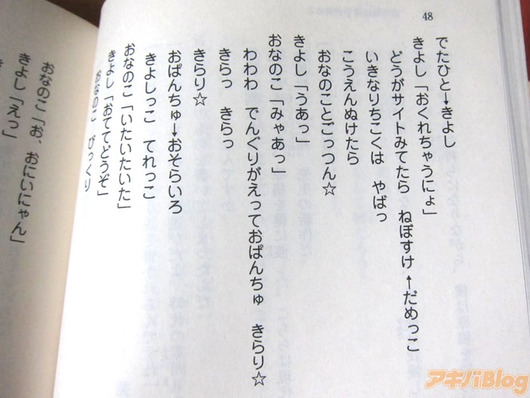 48
でたひと→きよし
きよし「おくれちゃうにょ」
どうがサイトみてたら　ねぼすけ←だめっこ
いきなりちこくは　やばっ
こうえんぬけたら
おなのことごっつん☆
きよし「うあっ」
おなのこ「みゃあっ」
わわわ　でんぐりがえっておぱんちゅ　きらり☆
きらっ　きらっ
きらり☆
おぱんちゅ→おそらいろ
きよしっこ　てれっこ
おなのこ「いたいたいた」
きよし「おててどうぞ」
おなのこ　びっくり
おなのこ「お、おにいにゃん」
きよし「えっ」
アキバBlog